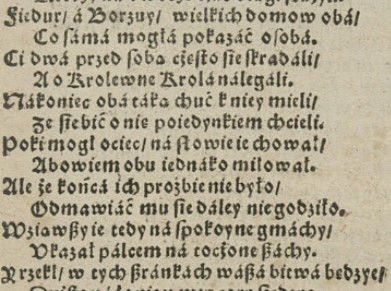 Fiedur/ á Borzuy/ wielkich domow obá/
Co sámá mogłá pokázáć osobá.
Ci dwá przed sobą cżęsto się skradáli/
A o Krolewnę Krolá nálegáli.
Nákoniec obá táką chuć k niey mieli/
Że się bić o nię poiedynkiem chcieli.
Poki mogł ociec/ ná słowie ie chował/
Abowiem obu iednáko miłował.
Ale że końcá ich proźbie nie było/
Odmawiáć mu się dáley nie godziło.
Wziąwszy ie tedy ná spokoyne gmáchy/
Vkazał pálcem ná tocżone száchy.
Y rzekł/ w tych szránkách wászá bitwá będzye/